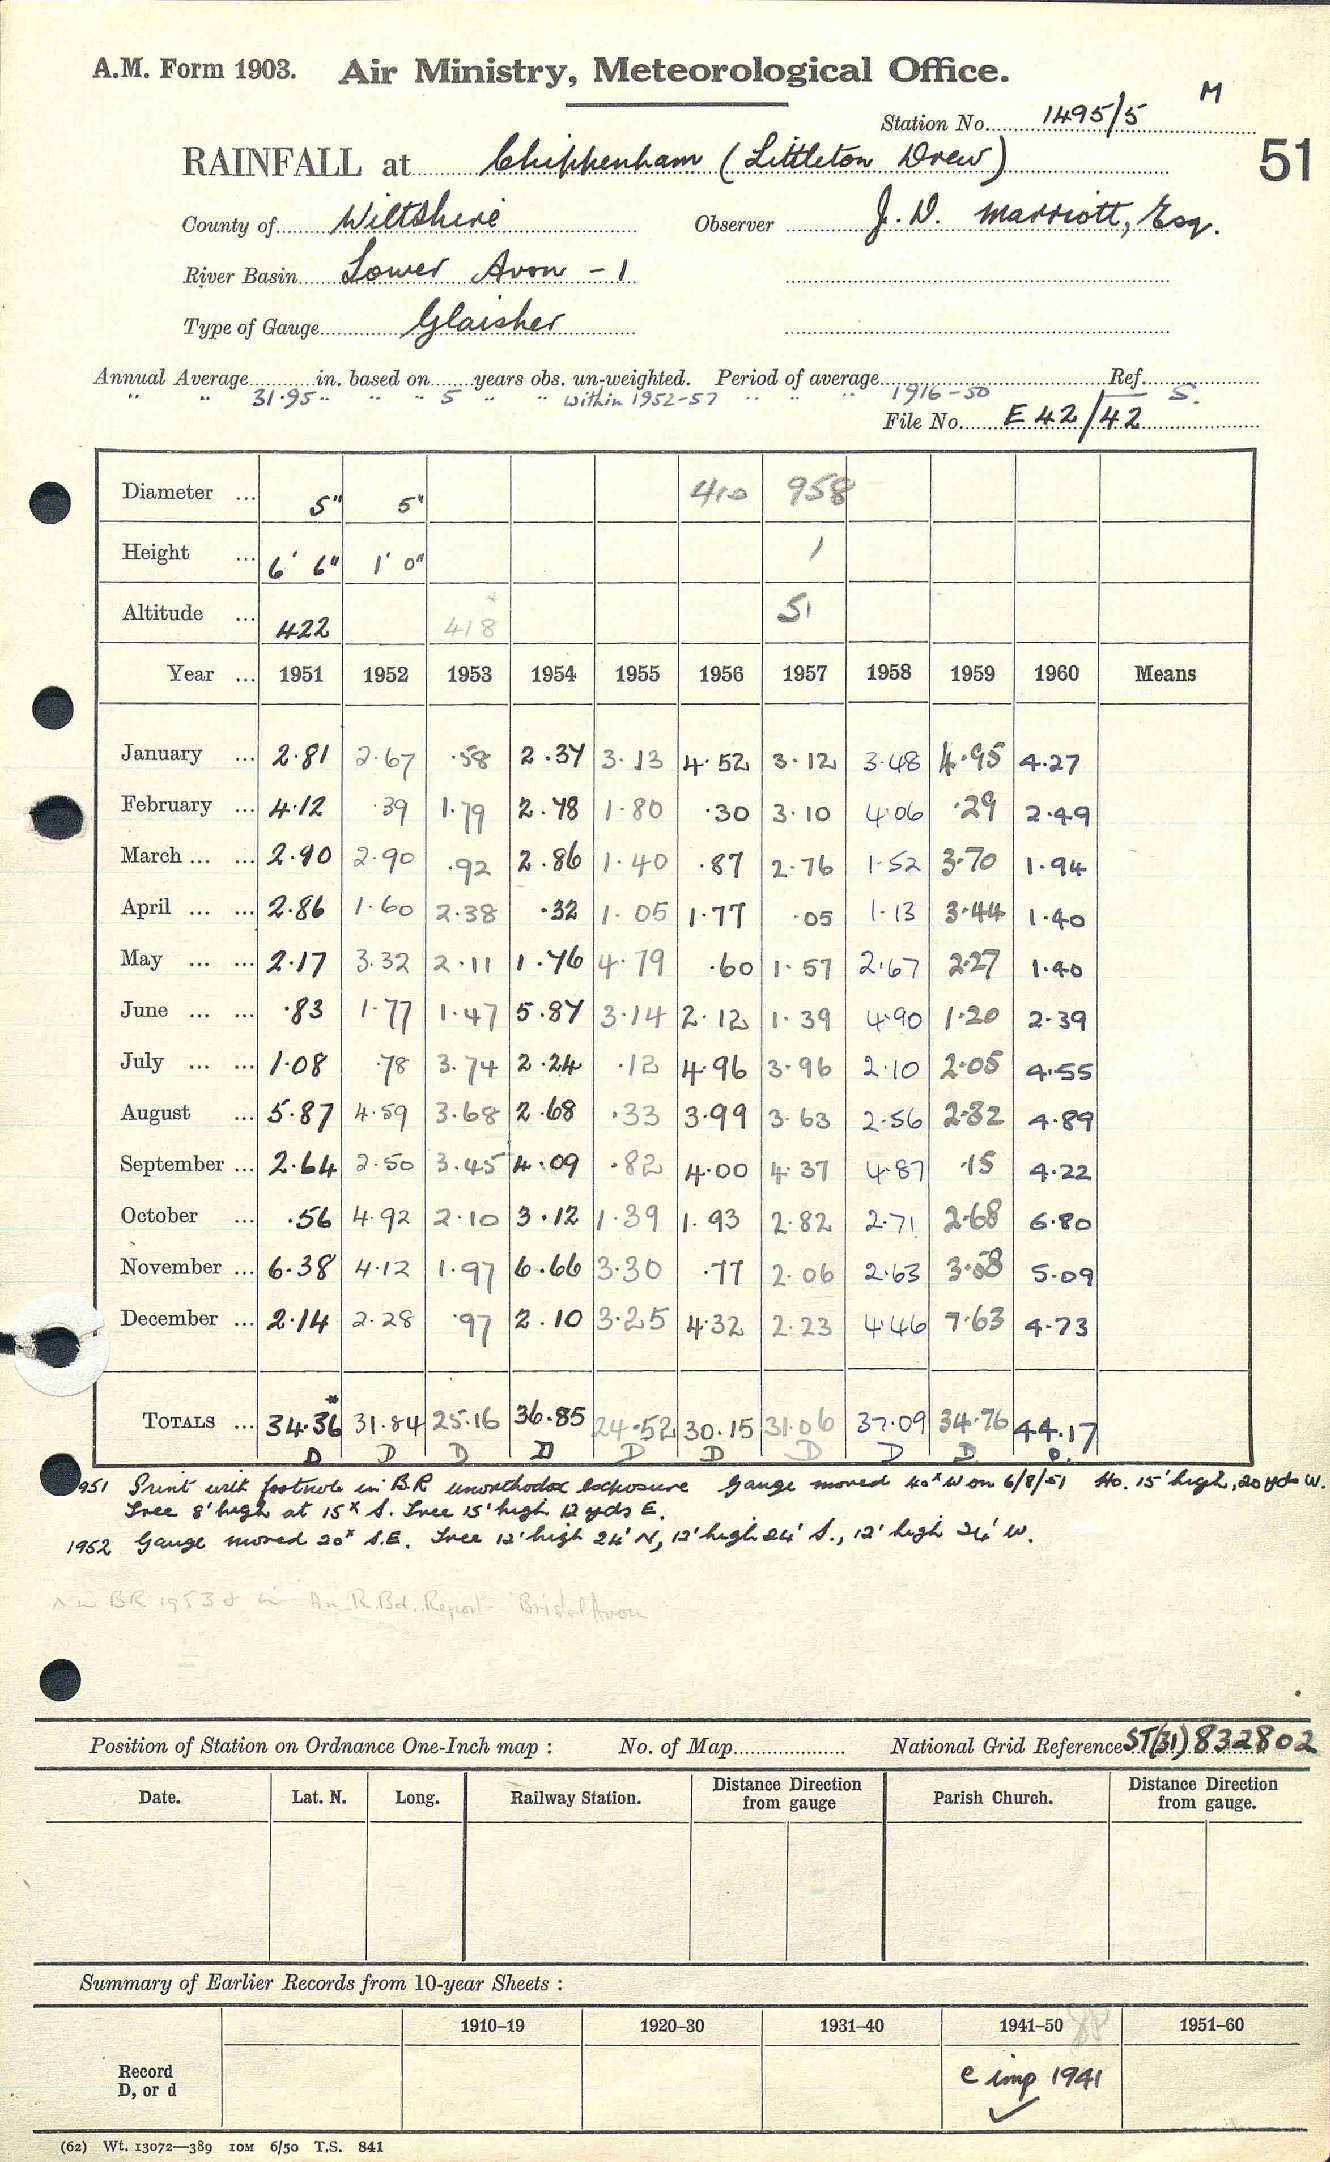 A.M. Form 1903. Air Ministry, Meteorological Office.
M
Station No. 1495/5
51
RAINFALL at Chippenham (Littleton Drew)
County of Wiltshire Observer J. D. Marriott, Esq.
River Basin Lower Avon - 1
Type of Gauge Glaisher
Annual Average in. based on years obs. un-weighted. Period of average Ref.
" " 31.95 " " " 5 " " within 1952-57 " " " 1916-50 S.
File No. E 42/42
Diameter ... 5" 5" 410 958
Height ... 6' 6" 1' 0" 1
Altitude ... 422 418 51
Year ... 1951 1952 1953 1954 1955 1956 1957 1958 1959 1960 Means
January ... 2.81 2.67 .58 2.34 3.13 4.52 3.12 3.48 4.95 4.27
February ... 4.12 .39 1.79 2.78 1.80 .30 3.10 4.06 .29 2.49
March ... ... 2.90 2.90 .92 2.86 1.40 .87 2.76 1.52 3.70 1.94
April ... ... 2.86 1.60 2.38 .32 1.05 1.77 .05 1.13 3.44 1.40
May ... ... 2.17 3.32 2.11 1.76 4.79 .60 1.57 2.67 2.27 1.40
June ... ... .83 1.77 1.47 5.84 3.14 2.12 1.39 4.90 1.20 2.39
July ... ... 1.08 .78 3.74 2.24 .12 4.96 3.96 2.10 2.05 4.55
August ... 5.87 4.59 3.68 2.68 .33 3.99 3.63 2.56 2.82 4.89
September ... 2.64 2.50 3.45 4.09 .82 4.00 4.37 4.87 .15 4.22
October ... .56 4.92 2.10 3.12 1.39 1.93 2.82 2.71 2.68 6.80
November ... 6.38 4.12 1.97 6.66 3.30 .77 2.06 2.63 3.58 5.09
December ... 2.14 2.28 .97 2.10 3.25 4.32 2.23 4.46 7.63 4.73
TOTALS ... 34.36* 31.84 25.16 36.85 24.52 30.15 31.06 37.09 34.76 44.17
D D D D D D D D D D
1951 Print with footnote in B.R unorthodox exposure Gauge moved 40x W on 6/8/51 Ho. 15' high, 20 yds W.
Tree 8' high at 15x S. Tree 15' high 12 yds E.
1952 Gauge moved 20x S.E. Tree 12' high 24' N, 12' high 24' S., 12' high 24' W.
BR 1953 & in An. R. Bd. Report - Bristol Avon
Position of Station on Ordnance One-Inch map : No. of Map National Grid Reference ST(31) 832802
Date. Lat. N. Long. Railway Station. Distance Direction from gauge Parish Church. Distance Direction from gauge.
Summary of Earlier Records from 10-year Sheets :
1910-19 1920-30 1931-40 1941-50 1951-60
Record
D, or d
e imp 1941
(62) Wt. 13072—389 10M 6/50 T.S. 841